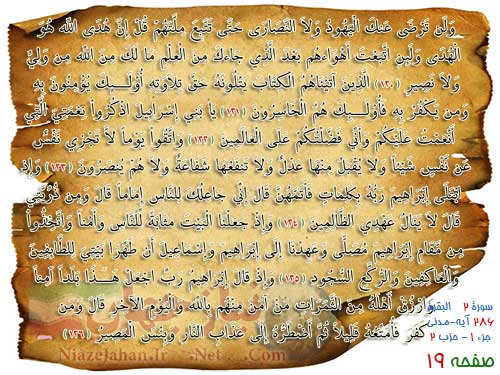 وَلَن تَرْضَى عَنكَ الْيَهُودُ وَلاَ النَّصَارَى حَتَّى تَتَّبِعَ مِلَّتَهُمْ قُلْ إِنَّ هُدَى اللّهِ هُوَ
الْهُدَى وَلَئِنِ اتَّبَعْتَ أَهْوَاءهُم بَعْدَ الَّذِي جَاءكَ مِنَ الْعِلْمِ مَا لَكَ مِنَ اللّهِ مِن وَلِيٍّ
وَلاَ نَصِيرٍ ﴿۱۲۰﴾ الَّذِينَ آتَيْنَاهُمُ الْكِتَابَ يَتْلُونَهُ حَقَّ تِلاَوَتِهِ أُوْلَـئِكَ يُؤْمِنُونَ بِهِ
وَمن يَكْفُرْ بِهِ فَأُوْلَـئِكَ هُمُ الْخَاسِرُونَ ﴿۱۲۱﴾ يَا بَنِي إِسْرَائِيلَ اذْكُرُواْ نِعْمَتِيَ الَّتِي
أَنْعَمْتُ عَلَيْكُمْ وَأَنِّي فَضَّلْتُكُمْ عَلَى الْعَالَمِينَ ﴿۱۲۲﴾ وَاتَّقُواْ يَوْماً لاَّ تَجْزِي نَفْسٌ
عَن نَّفْسٍ شَيْئاً وَلاَ يُقْبَلُ مِنْهَا عَدْلٌ وَلاَ تَنفَعُهَا شَفَاعَةٌ وَلاَ هُمْ يُنصَرُونَ ﴿۱۲۳﴾ وَإِذِ
ابْتَلَى إِبْرَاهِيمَ رَبُّهُ بِكَلِمَاتٍ فَأَتَمَّهُنَّ قَالَ إِنِّي جَاعِلُكَ لِلنَّاسِ إِمَاماً قَالَ وَمِن ذُرِّيَّتِي
قَالَ لاَ يَنَالُ عَهْدِي الظَّالِمِينَ ﴿۱۲۴﴾ وَإِذْ جَعَلْنَا الْبَيْتَ مَثَابَةً لِّلنَّاسِ وَأَمْناً وَاتَّخِذُواْ
مِن مَّقَامِ إِبْرَاهِيمَ مُصَلًّى وَعَهِدْنَا إِلَى إِبْرَاهِيمَ وَإِسْمَاعِيلَ أَن طَهِّرَا بَيْتِيَ لِلطَّائِفِينَ
وَالْعَاكِفِينَ وَالرُّكَّعِ السُّجُودِ ﴿۱۲۵﴾ وَإِذْ قَالَ إِبْرَاهِيمُ رَبِّ اجْعَلْ هَـَذَا بَلَداً آمِناً
وَارْزُقْ أَهْلَهُ مِنَ الثَّمَرَاتِ مَنْ آمَنَ مِنْهُم بِاللّهِ وَالْيَوْمِ الآخِرِ قَالَ وَمَن
كَفَرَ فَأُمَتِّعُهُ قَلِيلاً ثُمَّ أَضْطَرُّهُ إِلَى عَذَابِ النَّارِ وَبِئْسَ الْمَصِيرُ ﴿۱۲۶﴾
سورة ۲ البقرة
۲۸۶ آیه-مدنی
جزء ۱ - حزب ۲
صفحه ۱۹
NiazeJahan.Ir .Net .Com